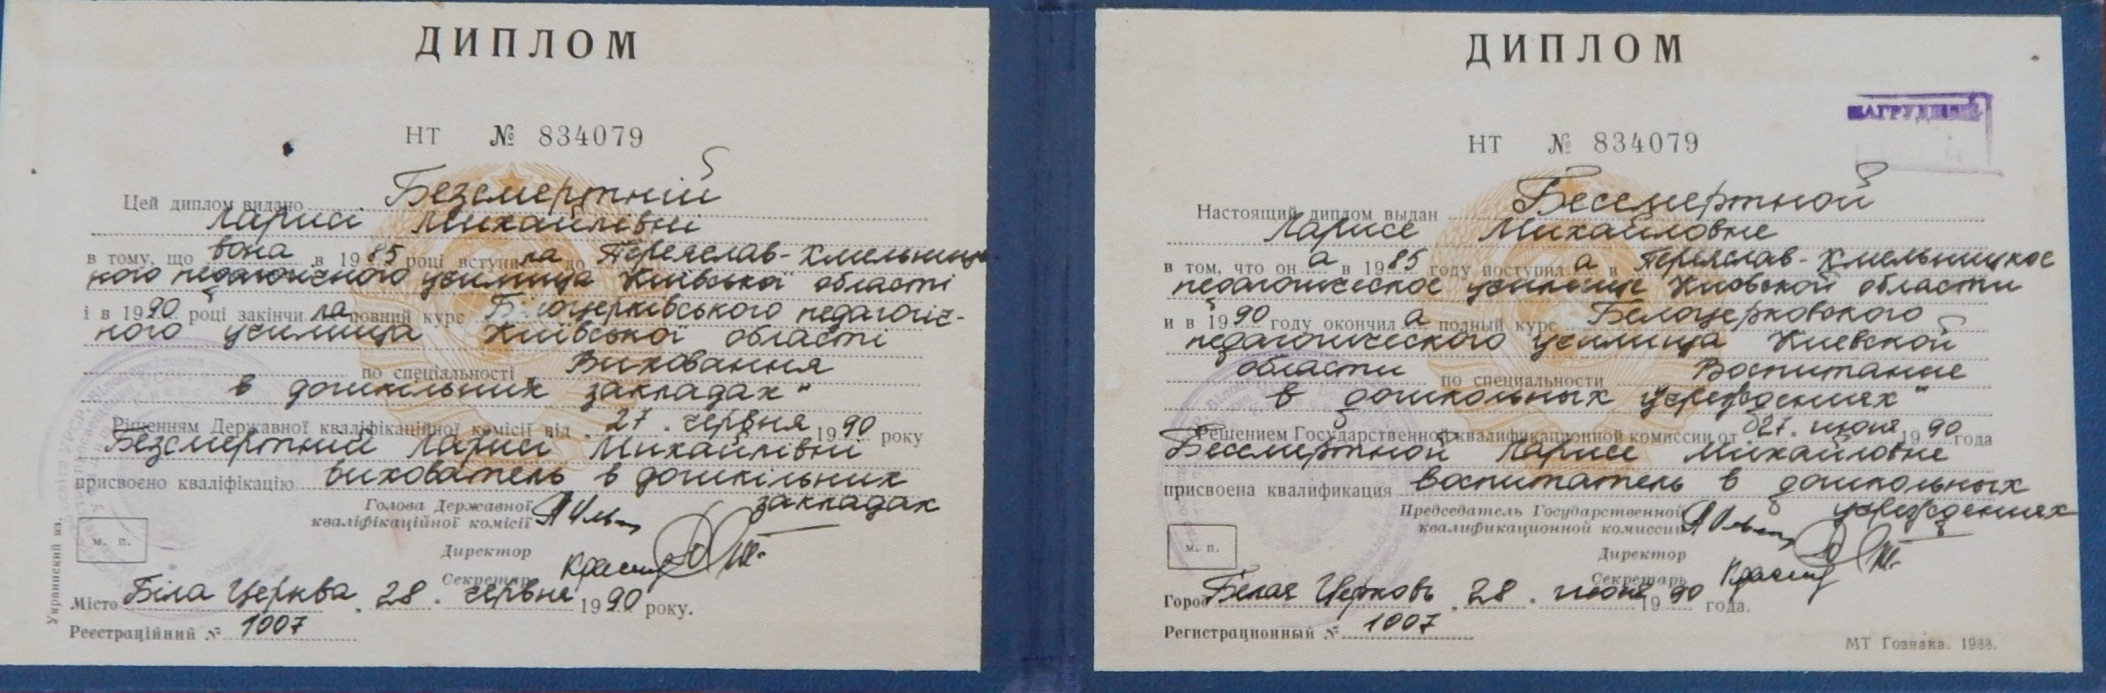 ДИПЛОМ
НТ № 834079
Цей диплом видано Безсмертній
Ларисі Михайлівні
в тому, що вона в 1985 році вступила до Переяслав-Хмельниць-
кого педагогічного училища Київської області
і в 1990 році закінчила повний курс Білоцерківського педагогіч-
ного училища Київської області
по спеціальності Виховання
в дошкільних закладах"
Рішенням Державної кваліфікаційної комісії від 27. червня 1990 року
Безсмертній Ларисі Михайлівні
присвоєно кваліфікацію вихователь в дошкільних
закладах
Голова Державної
кваліфікаційної комісії
Директор
Секретар
м. п.
Місто Біла Церква. 28. червня 1990 року.
Реєстраційний № 1007
Украинский яз.
ДИПЛОМ
НАГРУДНЫЙ
НТ № 834079
Настоящий диплом выдан Бессмертной
Ларисе Михайловне
в том, что она в 1985 году поступила в Переяслав-Хмельницкое
педагогическое училище Киевской области
и в 1990 году окончила полный курс Белоцерковского
педагогического училища Киевской
области по специальности Воспитание
в дошкольных учреждениях"
Решением Государственной квалификационной комиссии от 27. июня 1990 года
Бессмертной Ларисе Михайловне
присвоена квалификация воспитатель в дошкольных
учреждениях
Председатель Государственной
квалификационной комиссии
Директор
Секретарь
м. п.
Город Белая Церковь. 28. июня 1990 года.
Регистрационный № 1007
МТ Гознака. 1988.